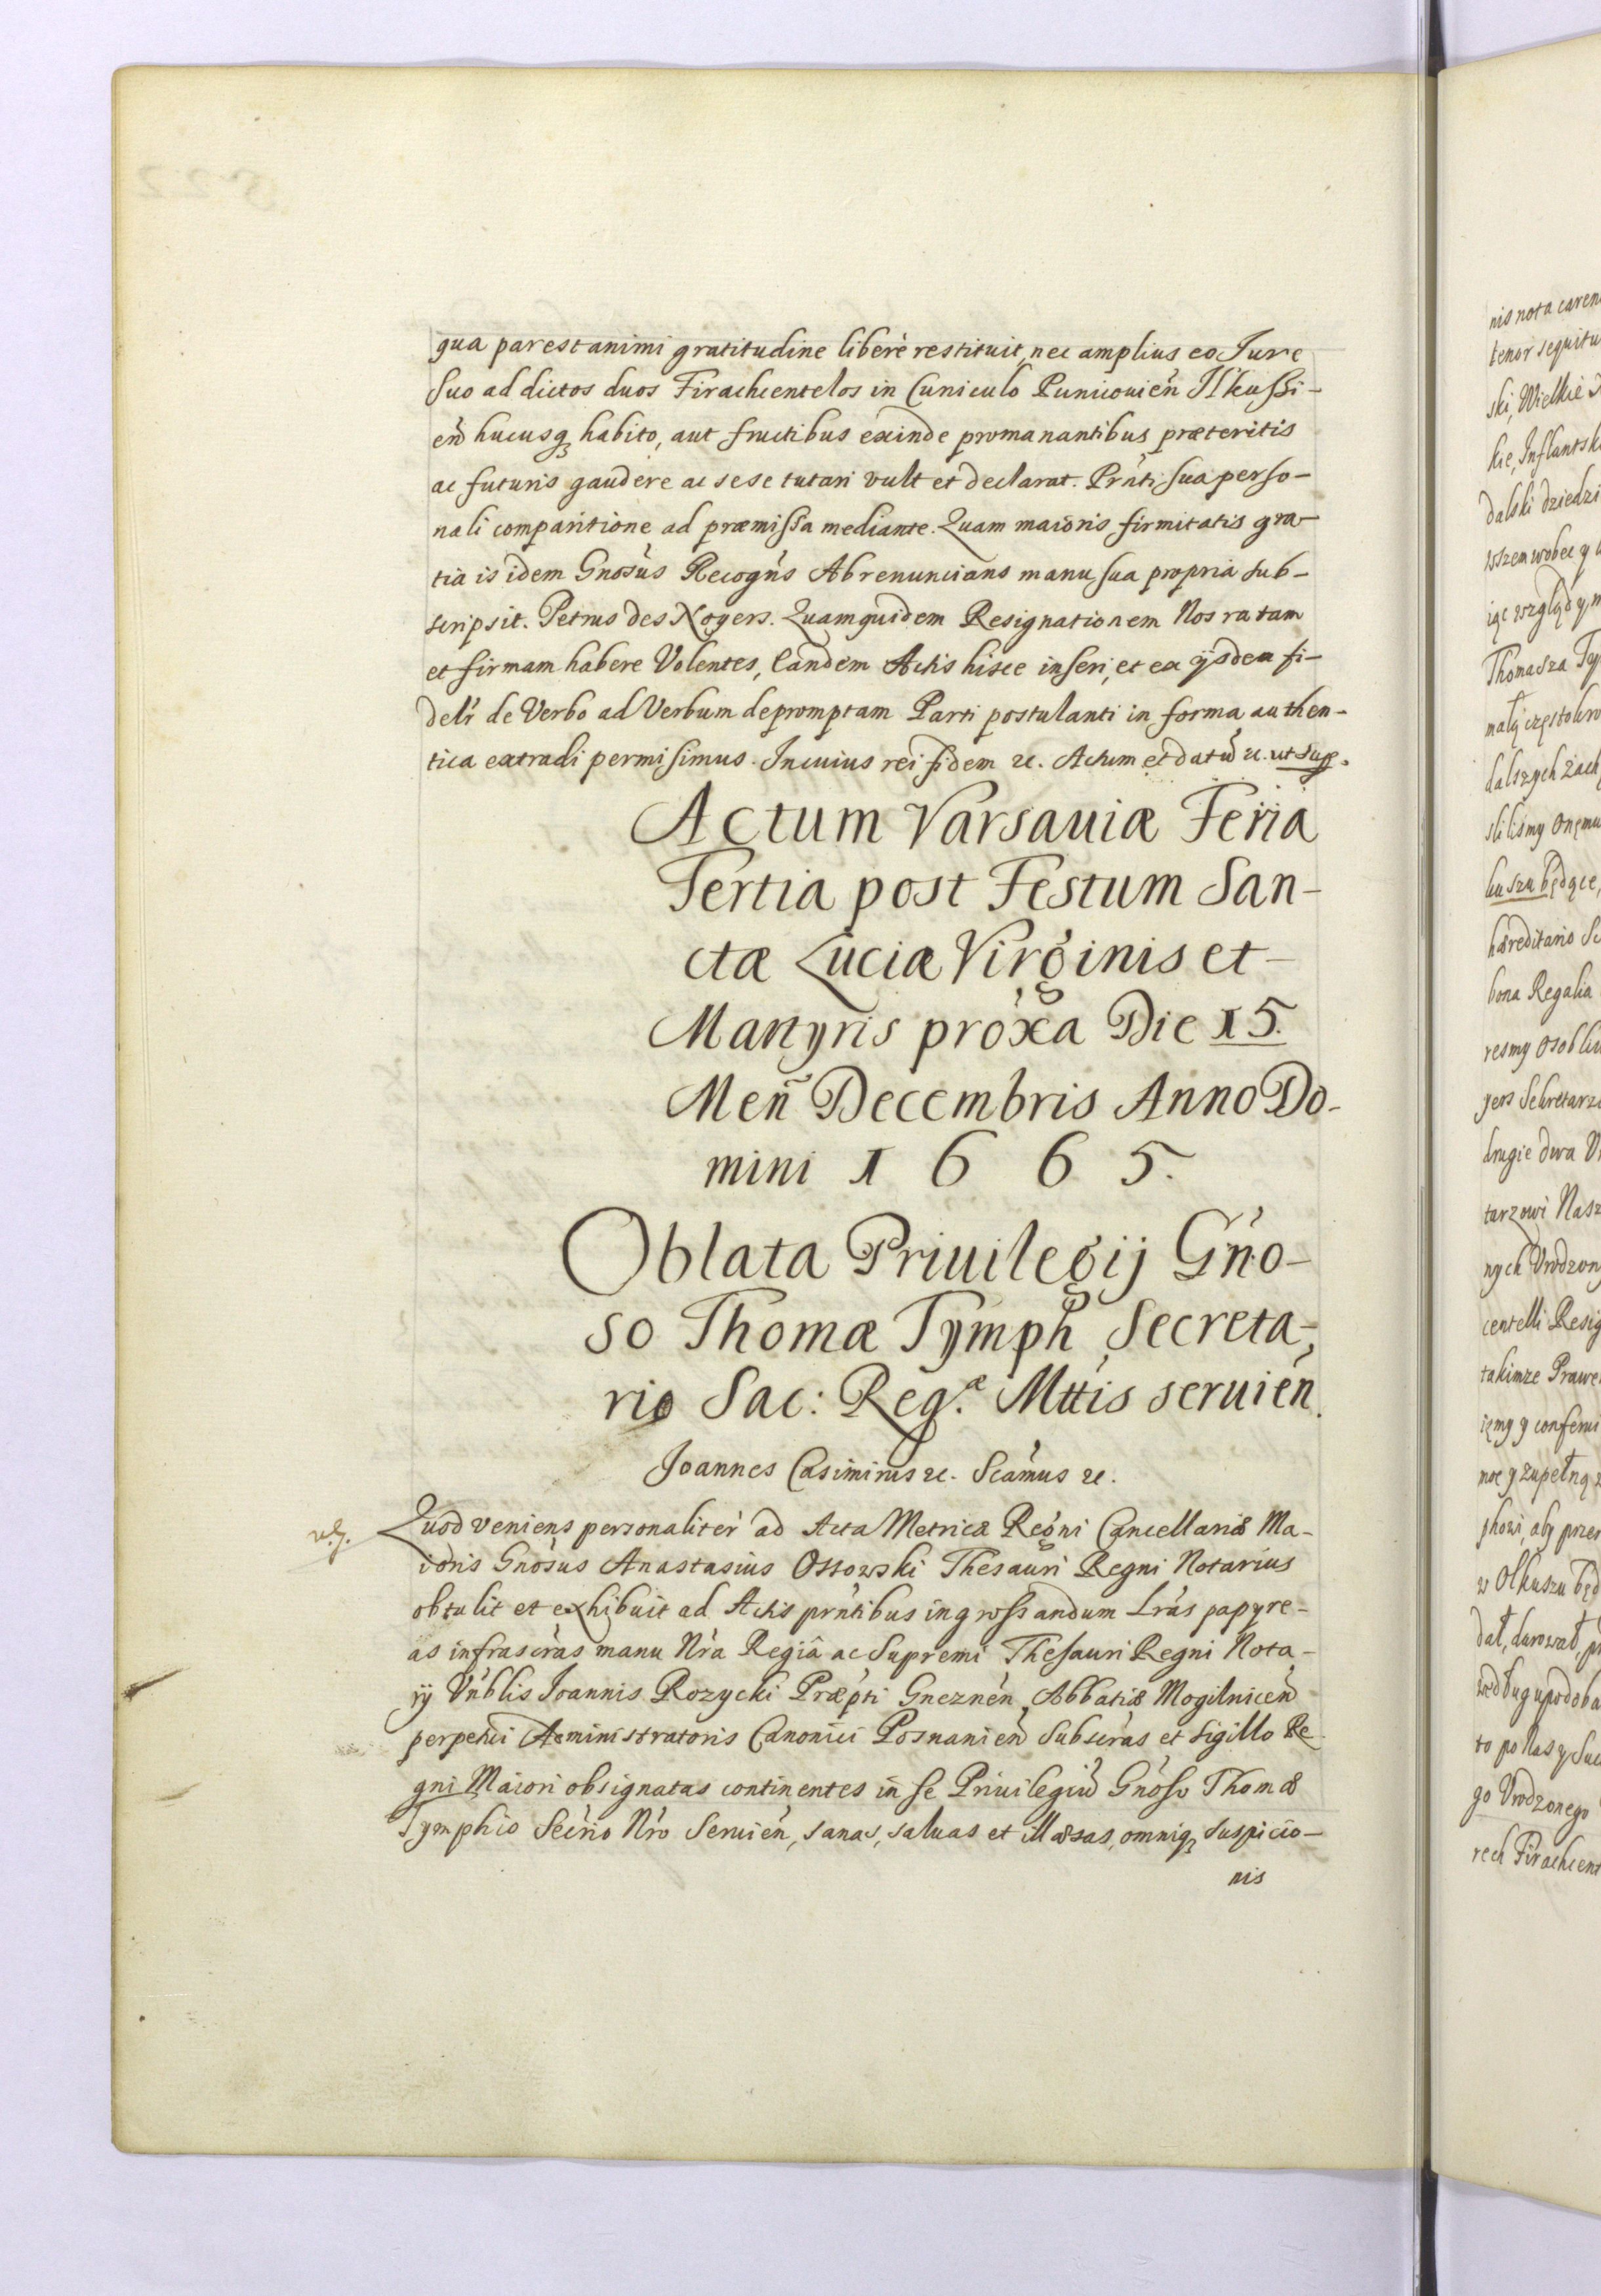 qua par est animi gratitudine liberè restituit, nec amplius eo Jure
suo ad dictos duos Firachcentelos in Cuniculo Punicouień Ilkussi-
eń hucusq; habito, aut fructibus exinde promanantibus præteritis
ac futuris gaudere ac sese tutari vult et declarat. Prńti sua perso-
nali comparitione ad præmissa mediante. Quam maioris firmitatis gra-
tia is idem Gnosùs Recogńs Abrenuncians manu sua propria sub-
scripsit. Petrus des Noyers. Quamquidem Resignationem Nos ratam
et firmam habere Volentes, Eandem Actis hisce inseri, et ex ijsdem fi-
delr de Verbo ad Verbum depromptam Parti postulanti in forma authen-
tica extradi permisimus. In cuius rei fidem &c. Actum et datũ &c. ut sup.
Actum Varsauiæ Feria
Tertia post Festum San-
ctæ Luciæ Virginis et
Martyris próxa Die 15.
Meñ Decembris Anno Do-
mini 1665.
Oblata Priuilegij Gńo-
so Thomæ Tymph Secreta-
rio Sac: Reg.æ Mttis seruień.
Joannes Casimirus &c. Scamùs &c.
Quod veniens personalitèr ad Acta Metricæ Regni Cancellariæ Ma-
ioris Gnosùs Anastasius Ossowski Thesauri Regni Notarius
obtulit et exhibuit ad Actis prńtibus ingrossandum Lrás papyre-
as infrascràs manu Nrà Regiâ ac Supremi Thesauri Regni Nota-
rij Vńblis Joannis Rozycki Præpti Gneznèn, Abbatiæ Mogilnicen
perpetui Administratoris Canonici Posnanień Subscràs et sigillo Re-
gni Maiori obsignatas continentes in se Priuilegiũ Gnóso Thomæ
Tymphio Secrio Nro Seruień, sanas, saluas et illæsas, omniq; suspicio-
nis
nis nota caren
tenor sequitu
ski, Wielkie
kie, Inflantsk
dalski dziedzi
wszem wobec y
iąc względy
Thomasza Ty
małÿ częstokro
dalszych zach
sliliśmy onęmu
kuszu będące,
hæreditario
bona Regalia
resmy osobliw
yers Sekretarz
drugie dwa
tarzowi Nasz
nych Vrodzon
centelli Resig
takimze Prawe
iemy y conferui
moc y zupełną
phowi, aby przer
w Olkuszu będ
dał, darował,
według upodoba
to po Nas y Suc
go Vrodzonego
rech Firachcent